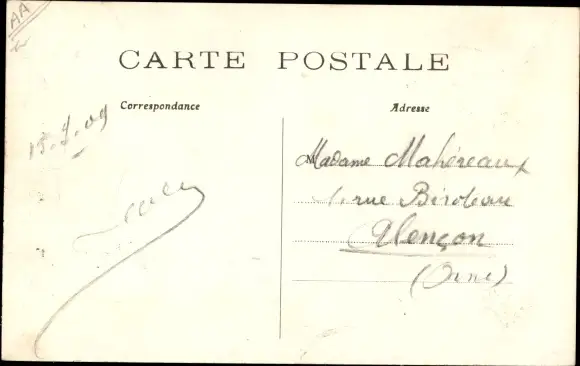 AA
CARTE POSTALE
Correspondance
Adresse
Madame Mahéreaux
1 rue Biroteau
Alençon
(Orne)